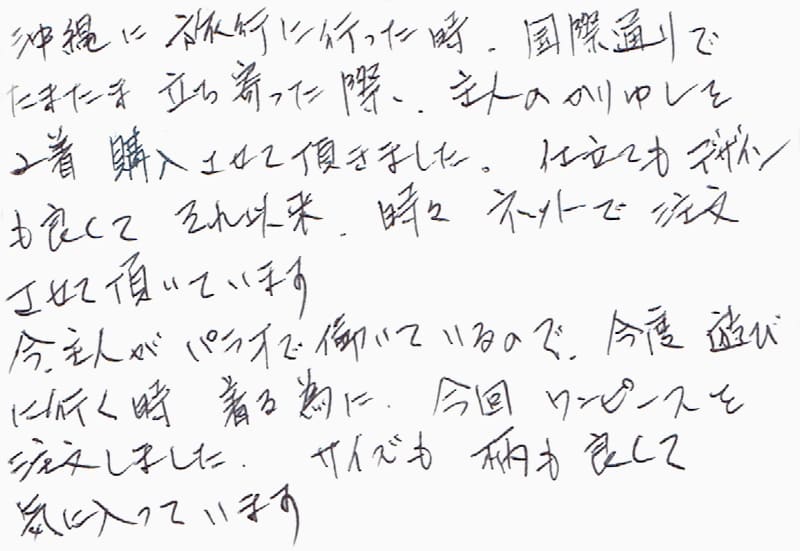 沖縄に旅行に行った時、国際通りで
たまたま立ち寄った際、主人のかりゆしを
2着購入させて頂きました。仕立てもデザイン
も良くてそれ以来、時々ネットで注文
させて頂いています
今、主人がパラオで働いているので、今度遊び
に行く時着る為に、今回ワンピースを
注文しました。サイズも柄も良くて
気に入っています